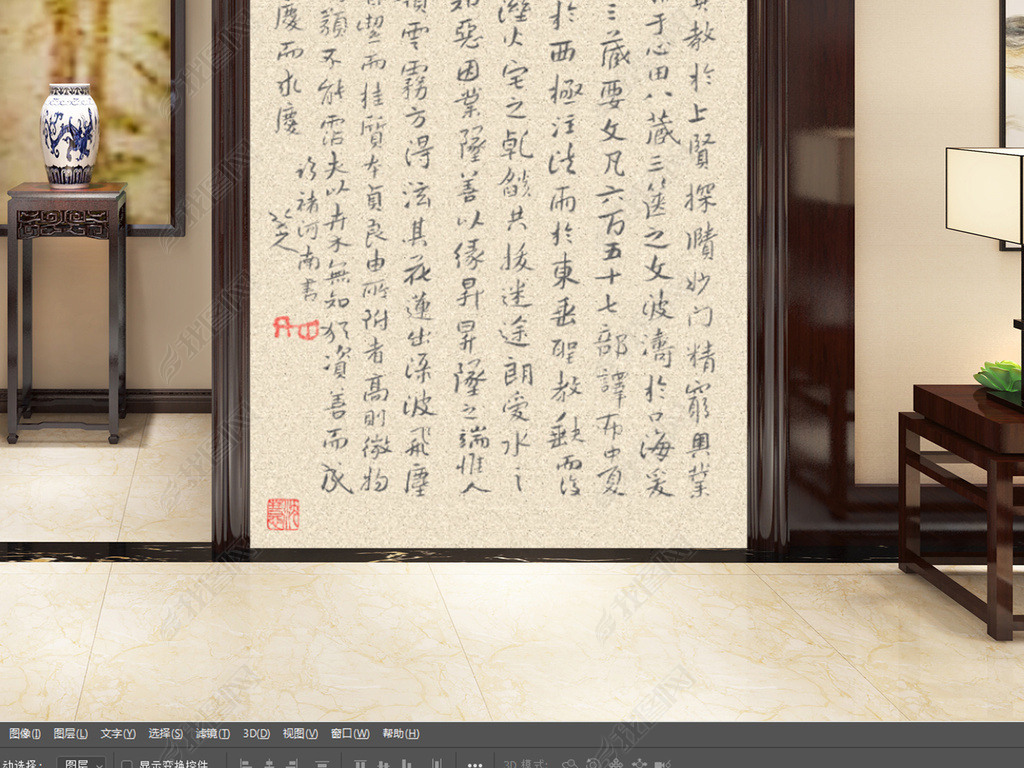 其教於上賢探賾妙门精窮奧業
于心田八藏三篋之文波濤於口海爰
三藏要文凡六百五十七部譯布中夏
於西極注法雨於東垂聖教缺而復
溼火宅之乾燄共拔迷途朗愛水之
惡因業墜善以緣昇昇墜之端惟人
雲霧方得泫其花蓮出渌波飛塵
而桂質本貞良由所附者高則微物
類不能霑夫以卉木無知猶資善而成
慶而求慶
临褚河南書
图像(I) 图层(L) 文字(Y) 选择(S) 滤镜(T) 3D(D) 视图(V) 窗口(W) 帮助(H)
动选择： 图层 显示变换控件 3D 模式：